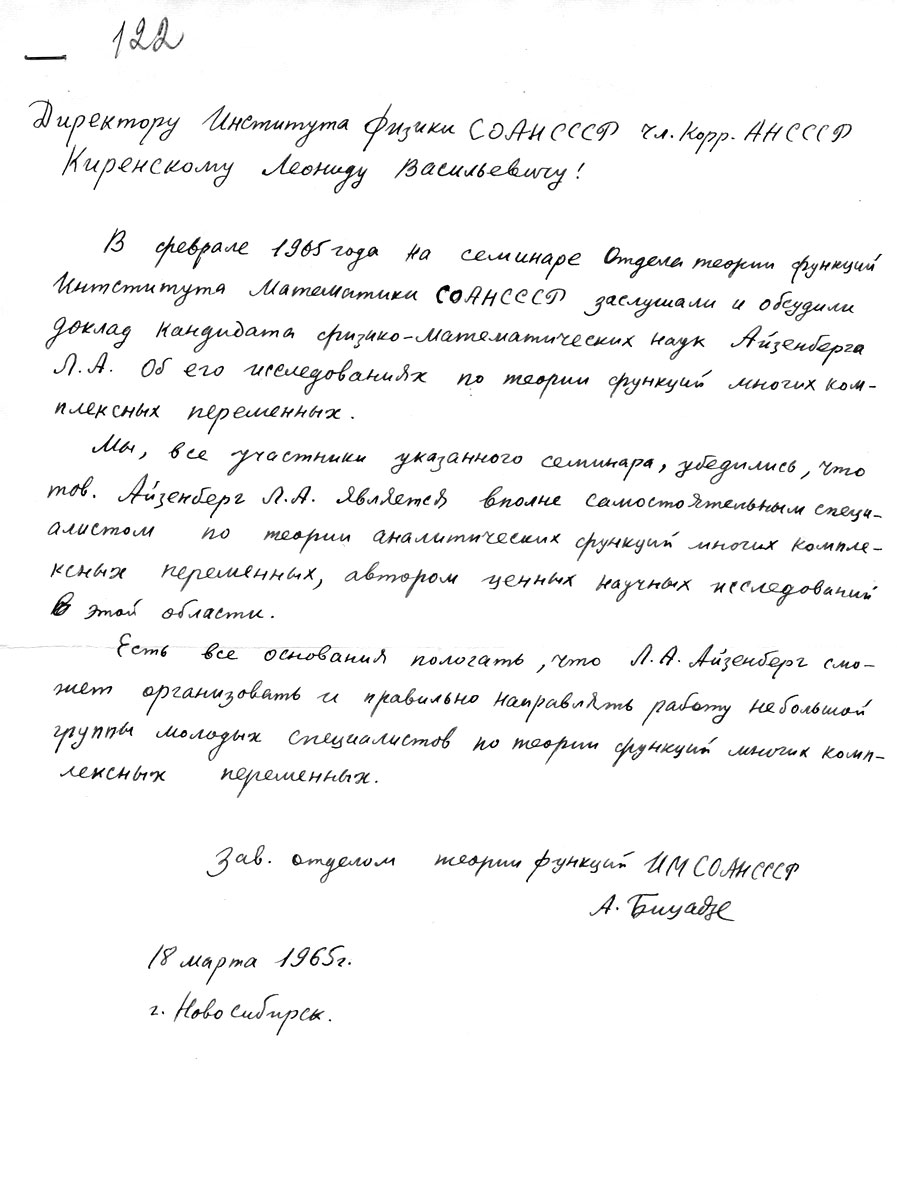 122
Директору Института физики СОАНСССР чл. Корр. АНСССР
Киренскому Леониду Васильевичу!
В феврале 1965 года на семинаре Отдела теории функций
Интститута Математики СОАНСССР заслушали и обсудили
доклад кандидата физико-математических наук Айзенберга
Л.А. Об его исследованиях по теории функций многих ком-
плексных переменных.
Мы, все участники указанного семинара, убедились, что
тов. Айзенберг Л.А. является вполне самостоятельным специ-
алистом по теории аналитических функций многих компле-
ксных переменных, автором ценных научных исследований
в этой области.
Есть все основания пологать, что Л.А. Айзенберг смо-
жет организовать и правильно направлять работу небольшой
группы молодых специалистов по теории функций многих комп-
лексных переменных.
Зав. отделом теории функций ИМСОАНСССР
А. Бицадзе
18 марта 1965г.
г. Новосибирск.